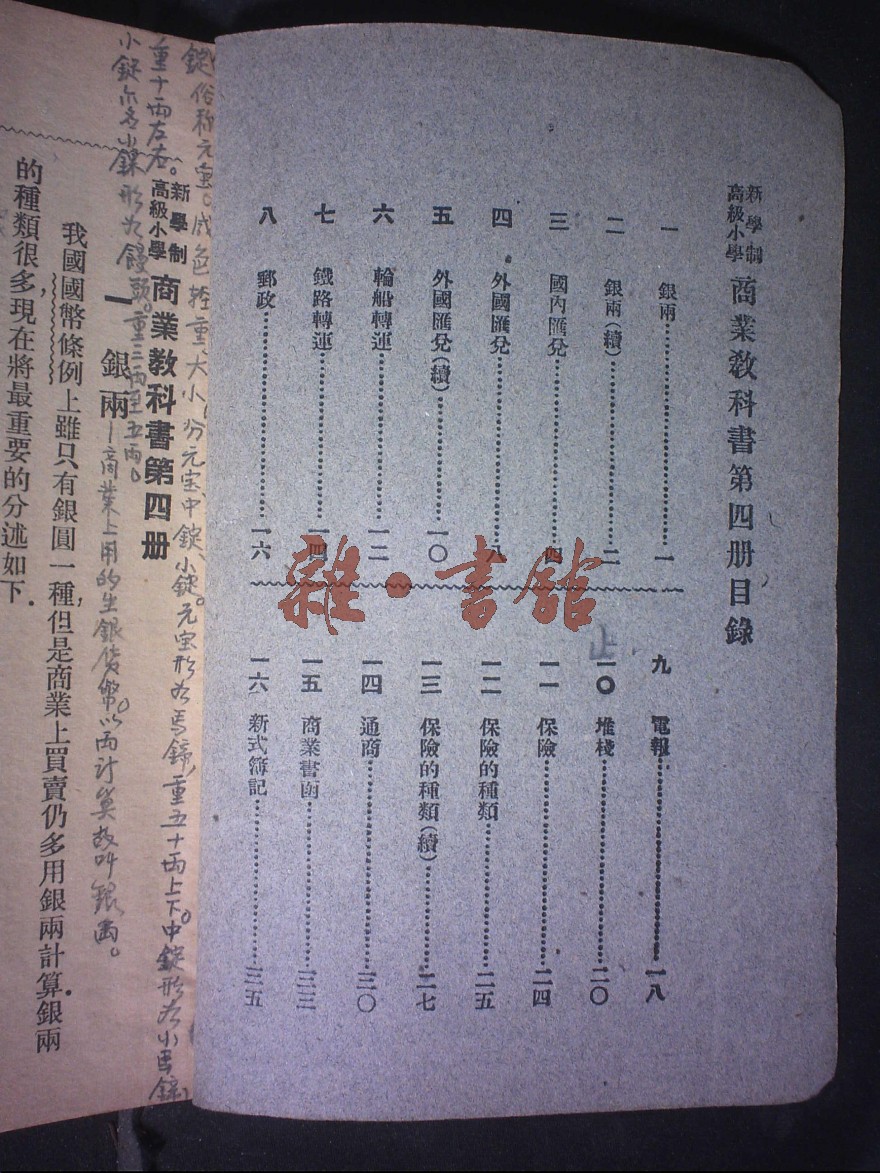 新學制
高級小學
商業教科書第四册目錄
一 銀兩 一
二 銀兩(續) 二
三 國內匯兌 四
四 外國匯兌 八
五 外國匯兌(續) 一〇
六 輪船轉運 一二
七 鐵路轉運 一四
八 郵政 一六
九 電報 一八
一〇 堆棧 二〇
一一 保險 二四
一二 保險的種類 二五
一三 保險的種類(續) 二七
一四 通商 三〇
一五 商業書函 三三
一六 新式簿記 三五
止
雜·書館
錠俗称元宝。成色轻重大小,分元宝、中錠、小錠。元宝形为馬鍗,重五十两上下。中錠形为小馬鍗,
重十两左右。
小錠亦名小錁形为饅头。重三两至五两。
新學制
高級小學
商業教科書第四册
一 銀兩
商業上用的生銀貨幣。以两计算故叫銀两。
我國國幣條例上雖只有銀圓一種,但是商業上買賣仍多用銀兩計算.銀兩
的種類很多,現在將最重要的分述如下.